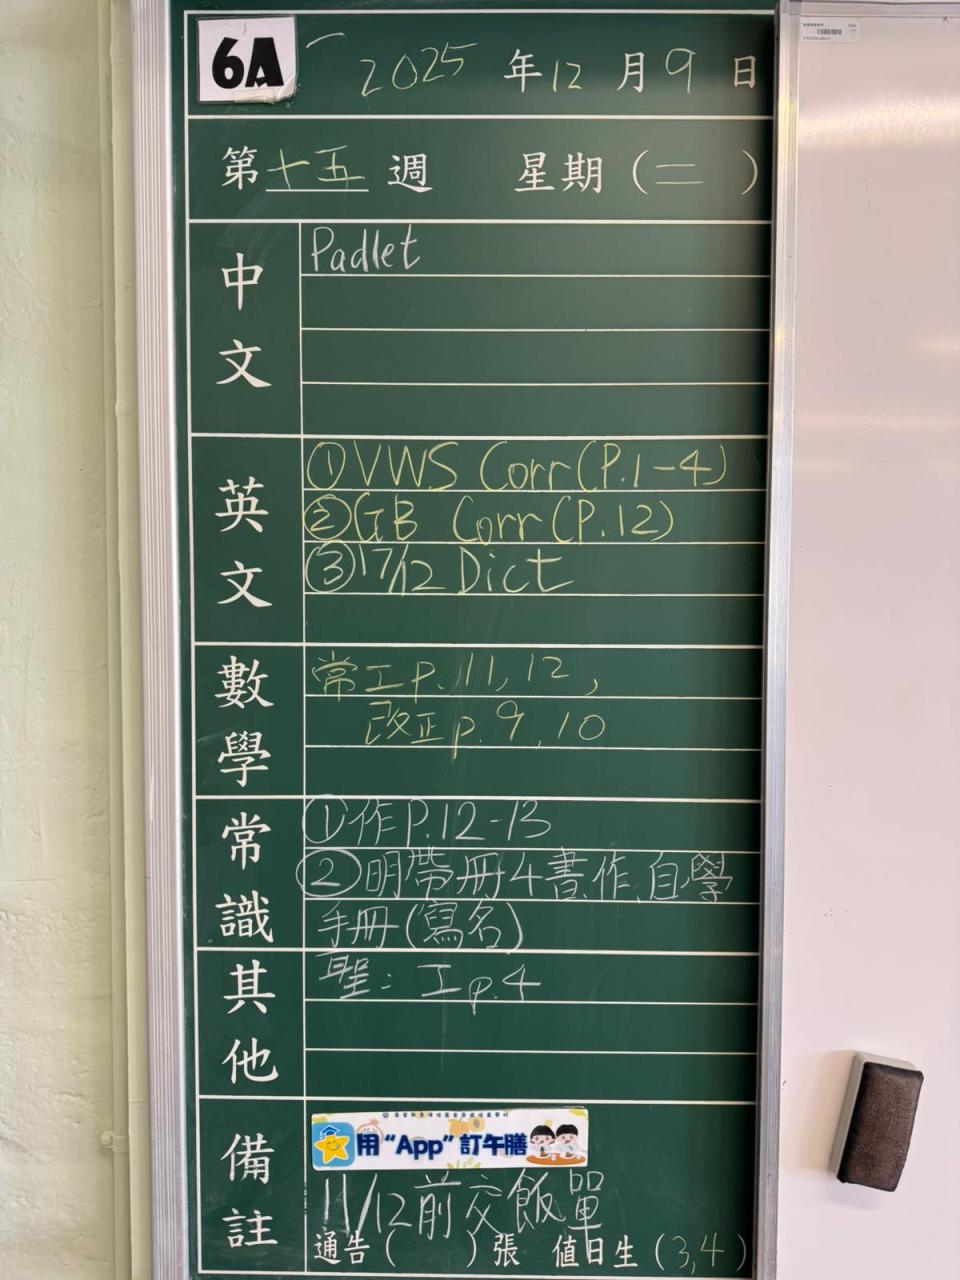 6A
2025 年 12 月 9 日
第 十五 週 星期 ( 二 )
中文
Padlet
英文
① VWS Corr (P.1-4)
② GB Corr (P.12)
③ 17/12 Dict
數學
常工p. 11, 12,
改正p. 9, 10
常識
① 作P.12-13
② 明帶冊4書、作、自學
手冊(寫名)
其他
聖: 工p.4
備註
用“App”訂午膳
11/12前交飯單
通告 ( ) 張 值日生 (3,4)